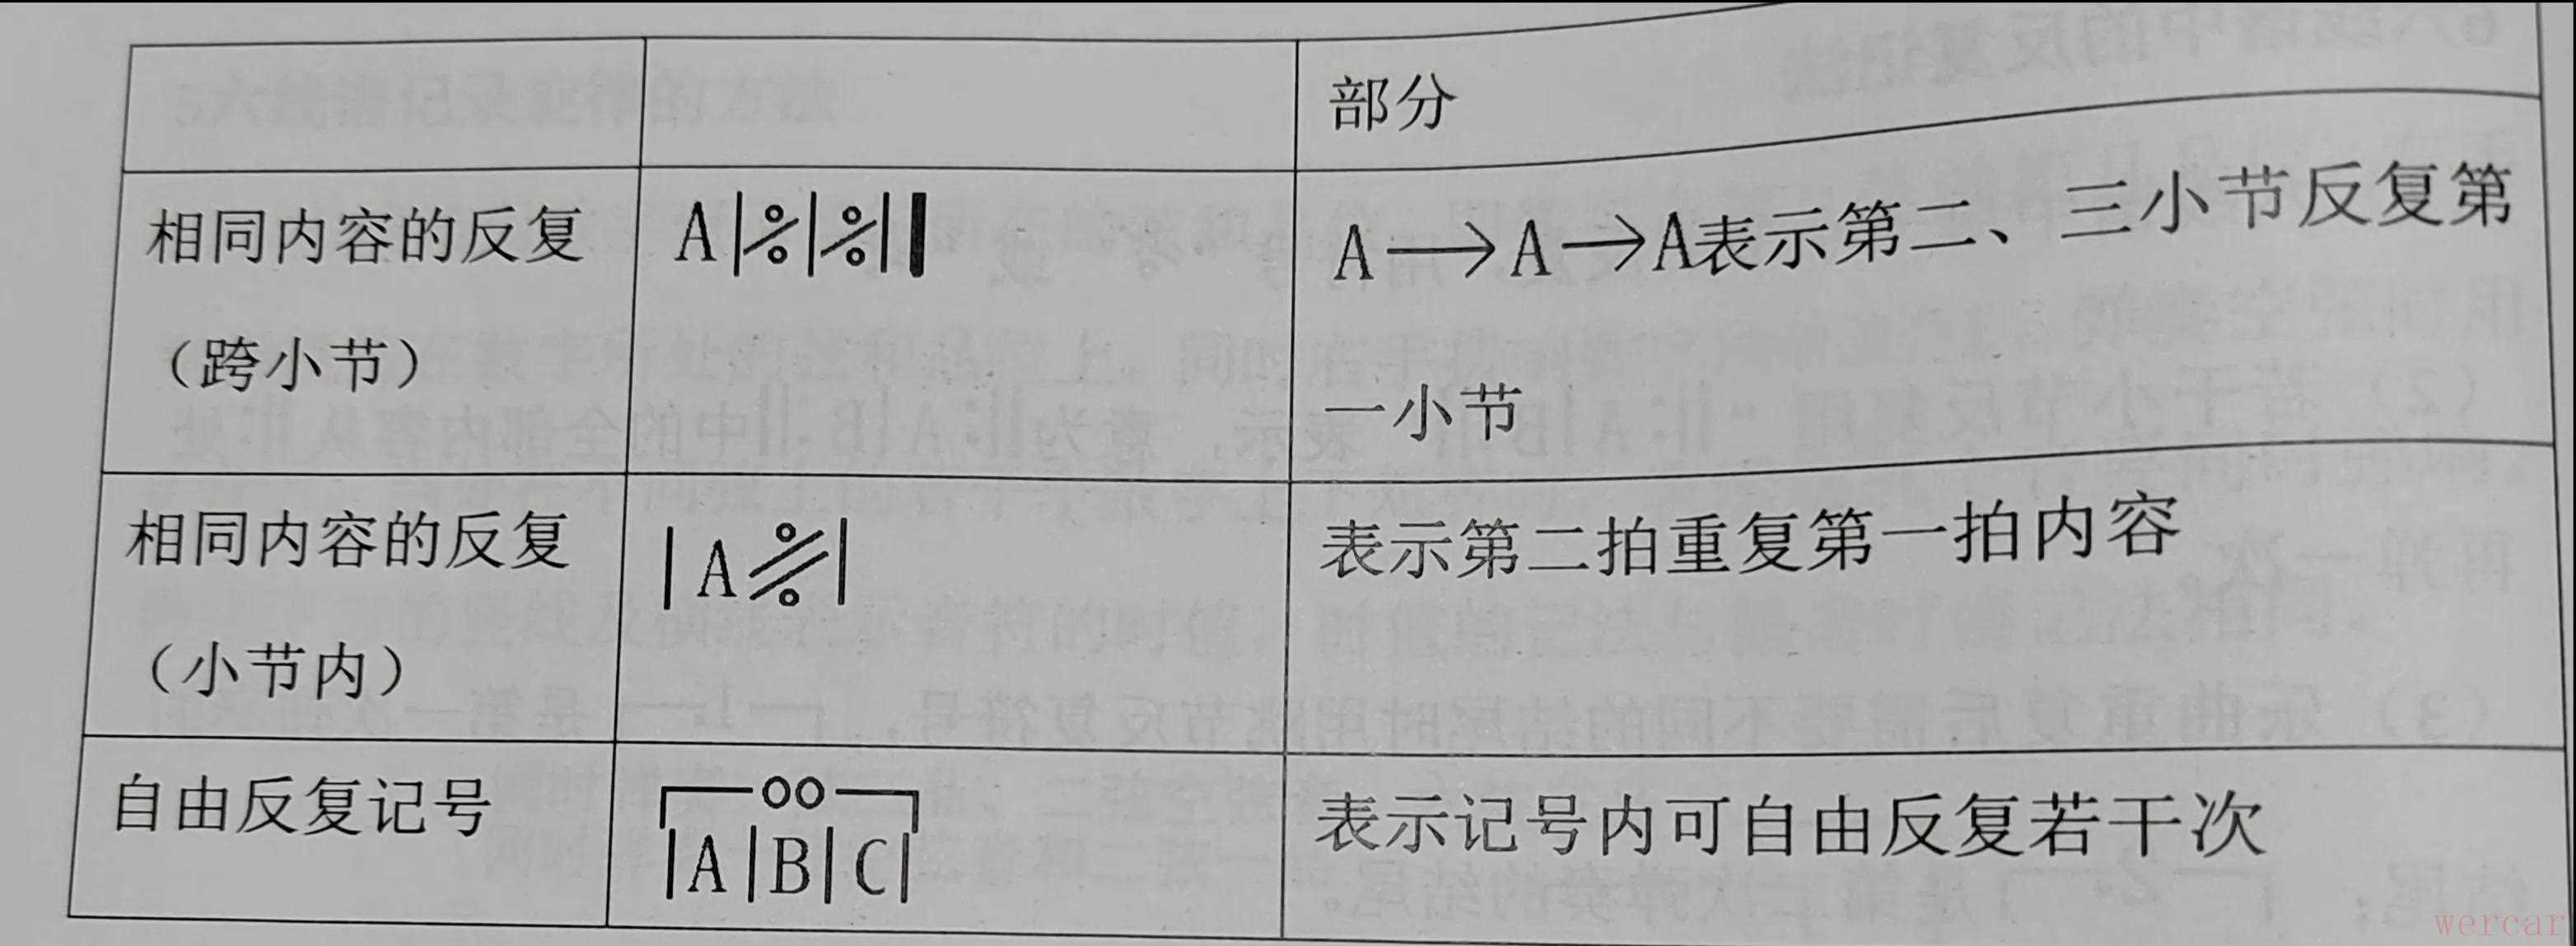 部分
相同内容的反复
A|٪|٪|‖
A→A→A表示第二、三小节反复第
（跨小节）
一小节
相同内容的反复
|A٪|
表示第二拍重复第一拍内容
（小节内）
自由反复记号
oo
|A|B|C|
表示记号内可自由反复若干次
wercar